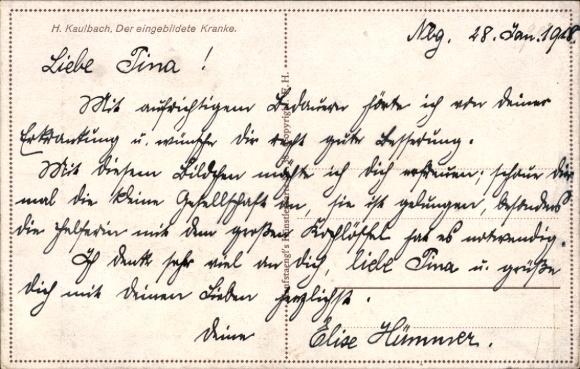 H. Kaulbach, Der eingebildete Kranke.
Nbg. 28. Jan. 1918.
Liebe Tina!
Mit aufrichtigem Bedauern hörte ich von deiner
Erkrankung u. wünsche Dir recht gute Besserung.
Mit diesem Bildchen möchte ich Dich erfreuen; schaue Dir
mal die kleine Gesellschaft an, sie ist gelungen, besonders
die Helferin mit dem großen Kochlöffel hat es notwendig.
Ich denke sehr viel an Dich, liebe Tina u. grüße
Dich mit Deinen Lieben herzlichst.
Deine
Elise Hümmer.